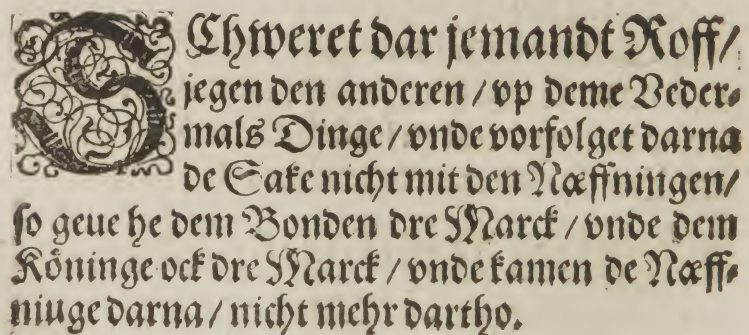 SChweret dar jemandt Roff/
jegen den anderen / vp deme Veder⸗
mals Dinge / vnde vorfolget darna
de Sake nicht mit den Næffningen/
so geue he dem Bonden dre Marck / vnde dem
Köninge ock dre Marck / vnde kamen de Næff⸗
niuge darna / nicht mehr dartho.